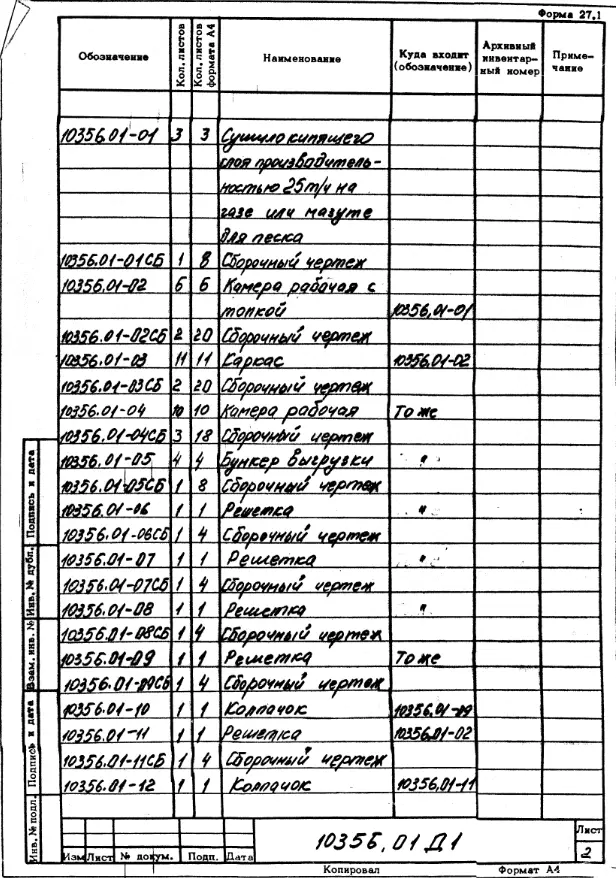 Форма 27.1
Обозначение Кол. листов Кол. листов формата А4 Наименование Куда входит (обозначение) Архивный инвентарный номер Примечание
10356.01-01 3 3 Сушило кипящего
слоя производитель-
ностью 25т/ч на
газе или мазуте
для песка
10356.01-01СБ 1 8 Сборочный чертеж
10356.01-02 6 6 Камера рабочая с
топкой 10356.01-01
10356.01-02СБ 2 20 Сборочный чертеж
10356.01-03 11 11 Каркас 10356.01-02
10356.01-03СБ 2 20 Сборочный чертеж
10356.01-04 10 10 Камера рабочая То же
10356.01-04СБ 3 18 Сборочный чертеж
10356.01-05 4 4 Бункер выгрузки "
10356.01-05СБ 1 8 Сборочный чертеж
10356.01-06 1 1 Решетка "
10356.01-06СБ 1 4 Сборочный чертеж
10356.01-07 1 1 Решетка "
10356.01-07СБ 1 4 Сборочный чертеж
10356.01-08 1 1 Решетка "
10356.01-08СБ 1 4 Сборочный чертеж
10356.01-09 1 1 Решетка То же
10356.01-09СБ 1 4 Сборочный чертеж
10356.01-10 1 1 Колпачок 10356.01-09
10356.01-11 1 1 Решетка 10356.01-02
10356.01-11СБ 1 4 Сборочный чертеж
10356.01-12 1 1 Колпачок 10356.01-11
Инв. № подл. Подпись и дата Взам. инв. № Инв. № дубл. Подпись и дата
Изм Лист № докум. Подп. Дата
10356.01Д1
Лист
2
Копировал Формат А4